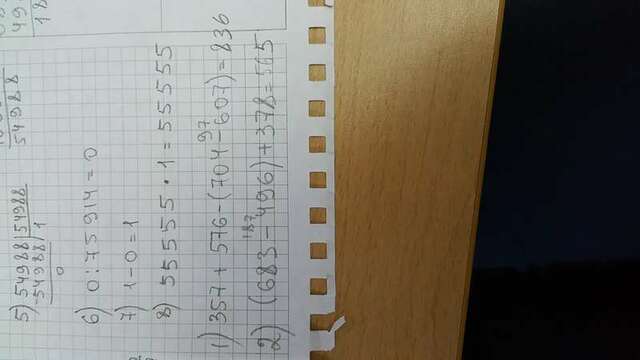 5) 54988 | 54988
-54988 | 1
0
54988
49
18
6) 0:75914=0
7) 1-0=1
8) 55555·1=55555
97
1) 357+576-(704-607)=836
187
2) (683-496)+378=565